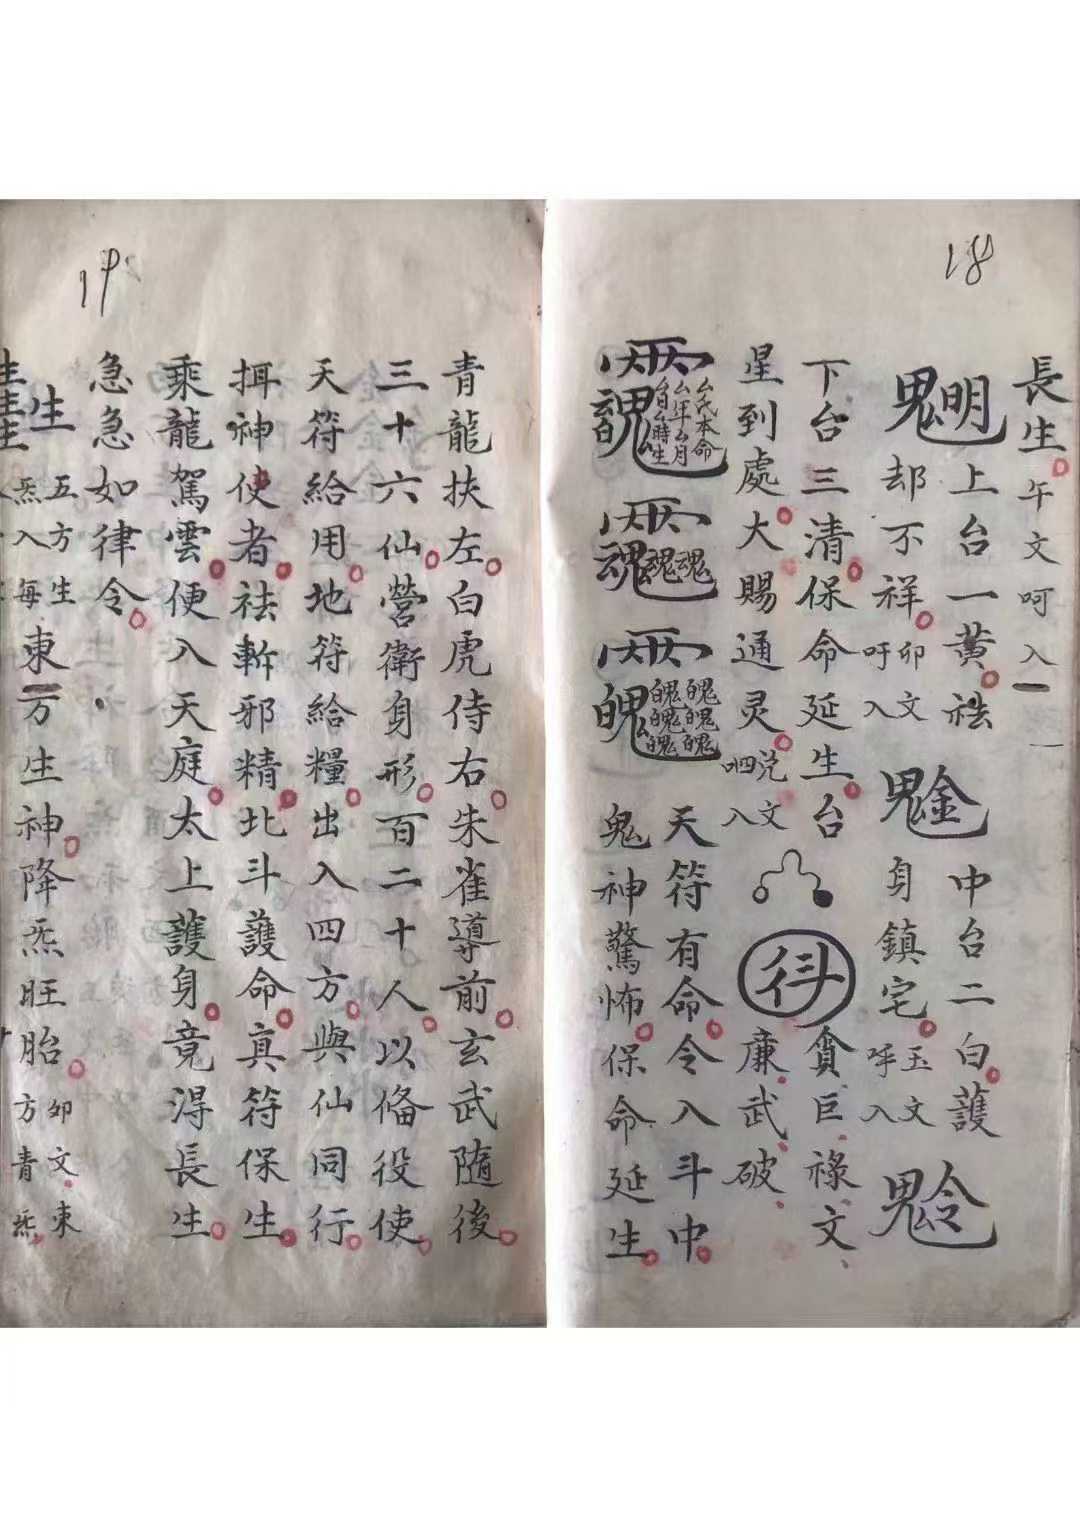 18
長生午文呵入
明鬼上台一黃祛
却不祥卯文吁入
金鬼中台二白護
身鎮宅玉文呼入
令鬼
下台三清保命延生台
星到處大賜通灵兑文呬入
貪巨祿文
廉武破
厶氏本命
厶年厶月
厶日厶時生
魂
魄
天符有命令入斗中
鬼神驚怖保命延生
19
青龍扶左白虎侍右朱雀導前玄武隨後
三十六仙營衛身形百二十人以俻役使
天符給用地符給糧出入四方與仙同行
掲神使者祛斬邪精北斗護命真符保生
乘龍駕雲便入天庭太上護身竟淂長生
急急如律令
生五方生炁入每東方生神降炁旺胎卯文東方青炁